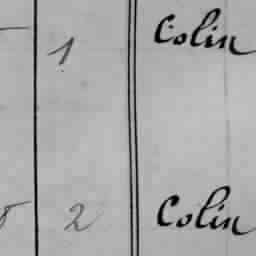 1 Colin
2 Colin